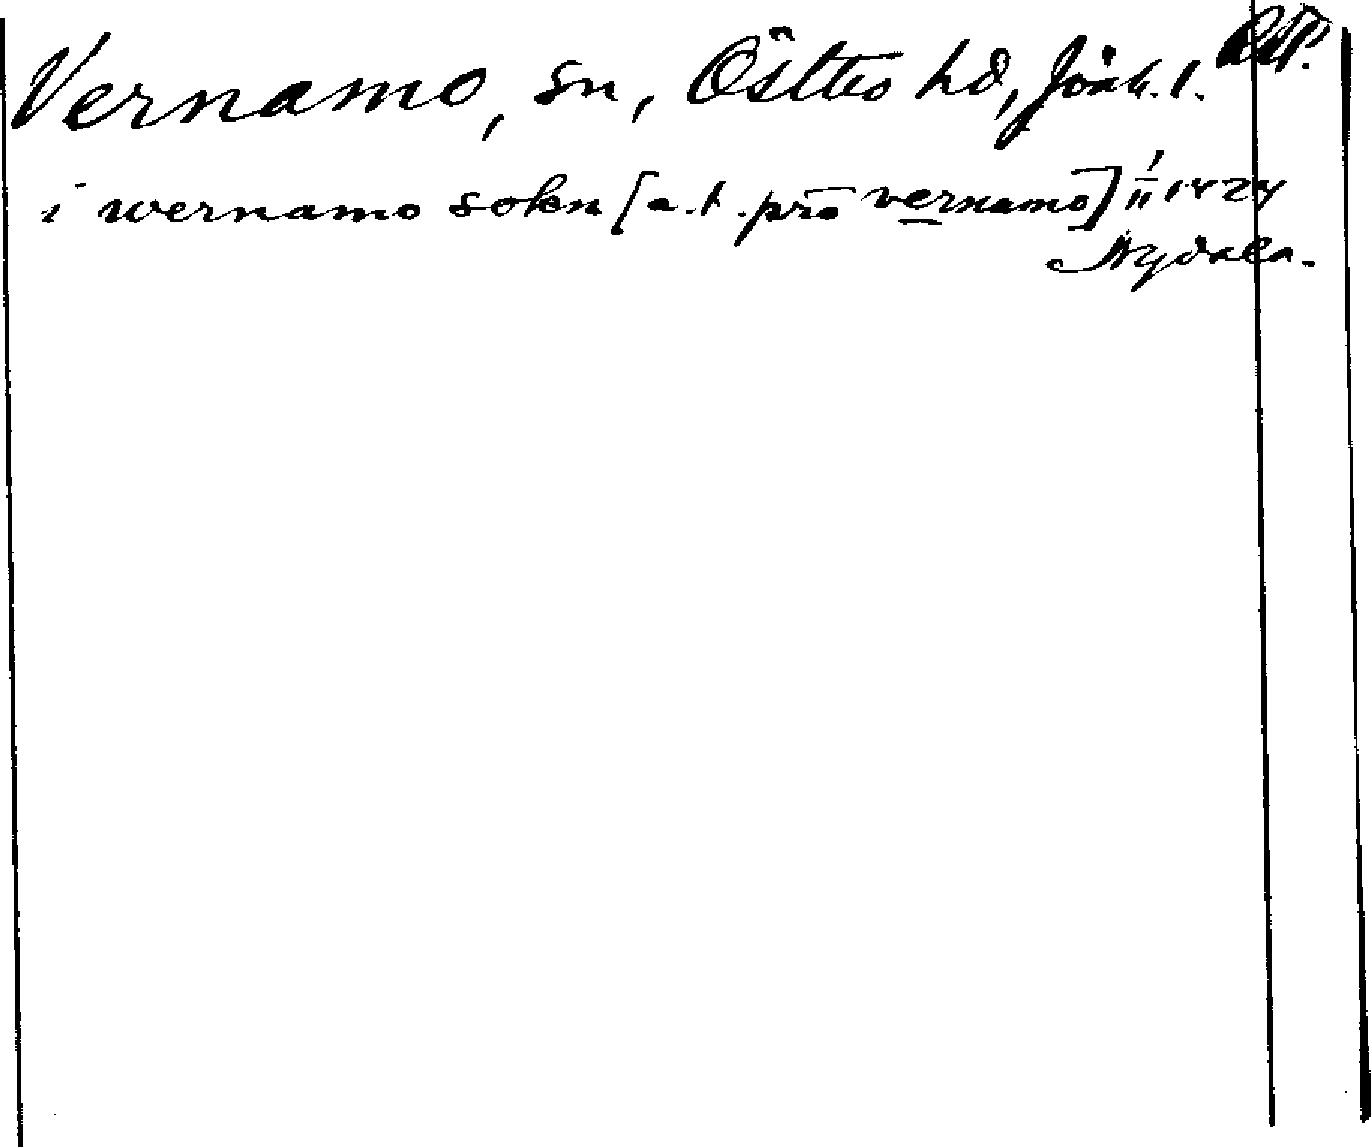 Vernamo, sn, Östbo hd, Jönk. l.
i wernamo sokn [a. t. prō vernamo] 1/11 1424
Nydala.